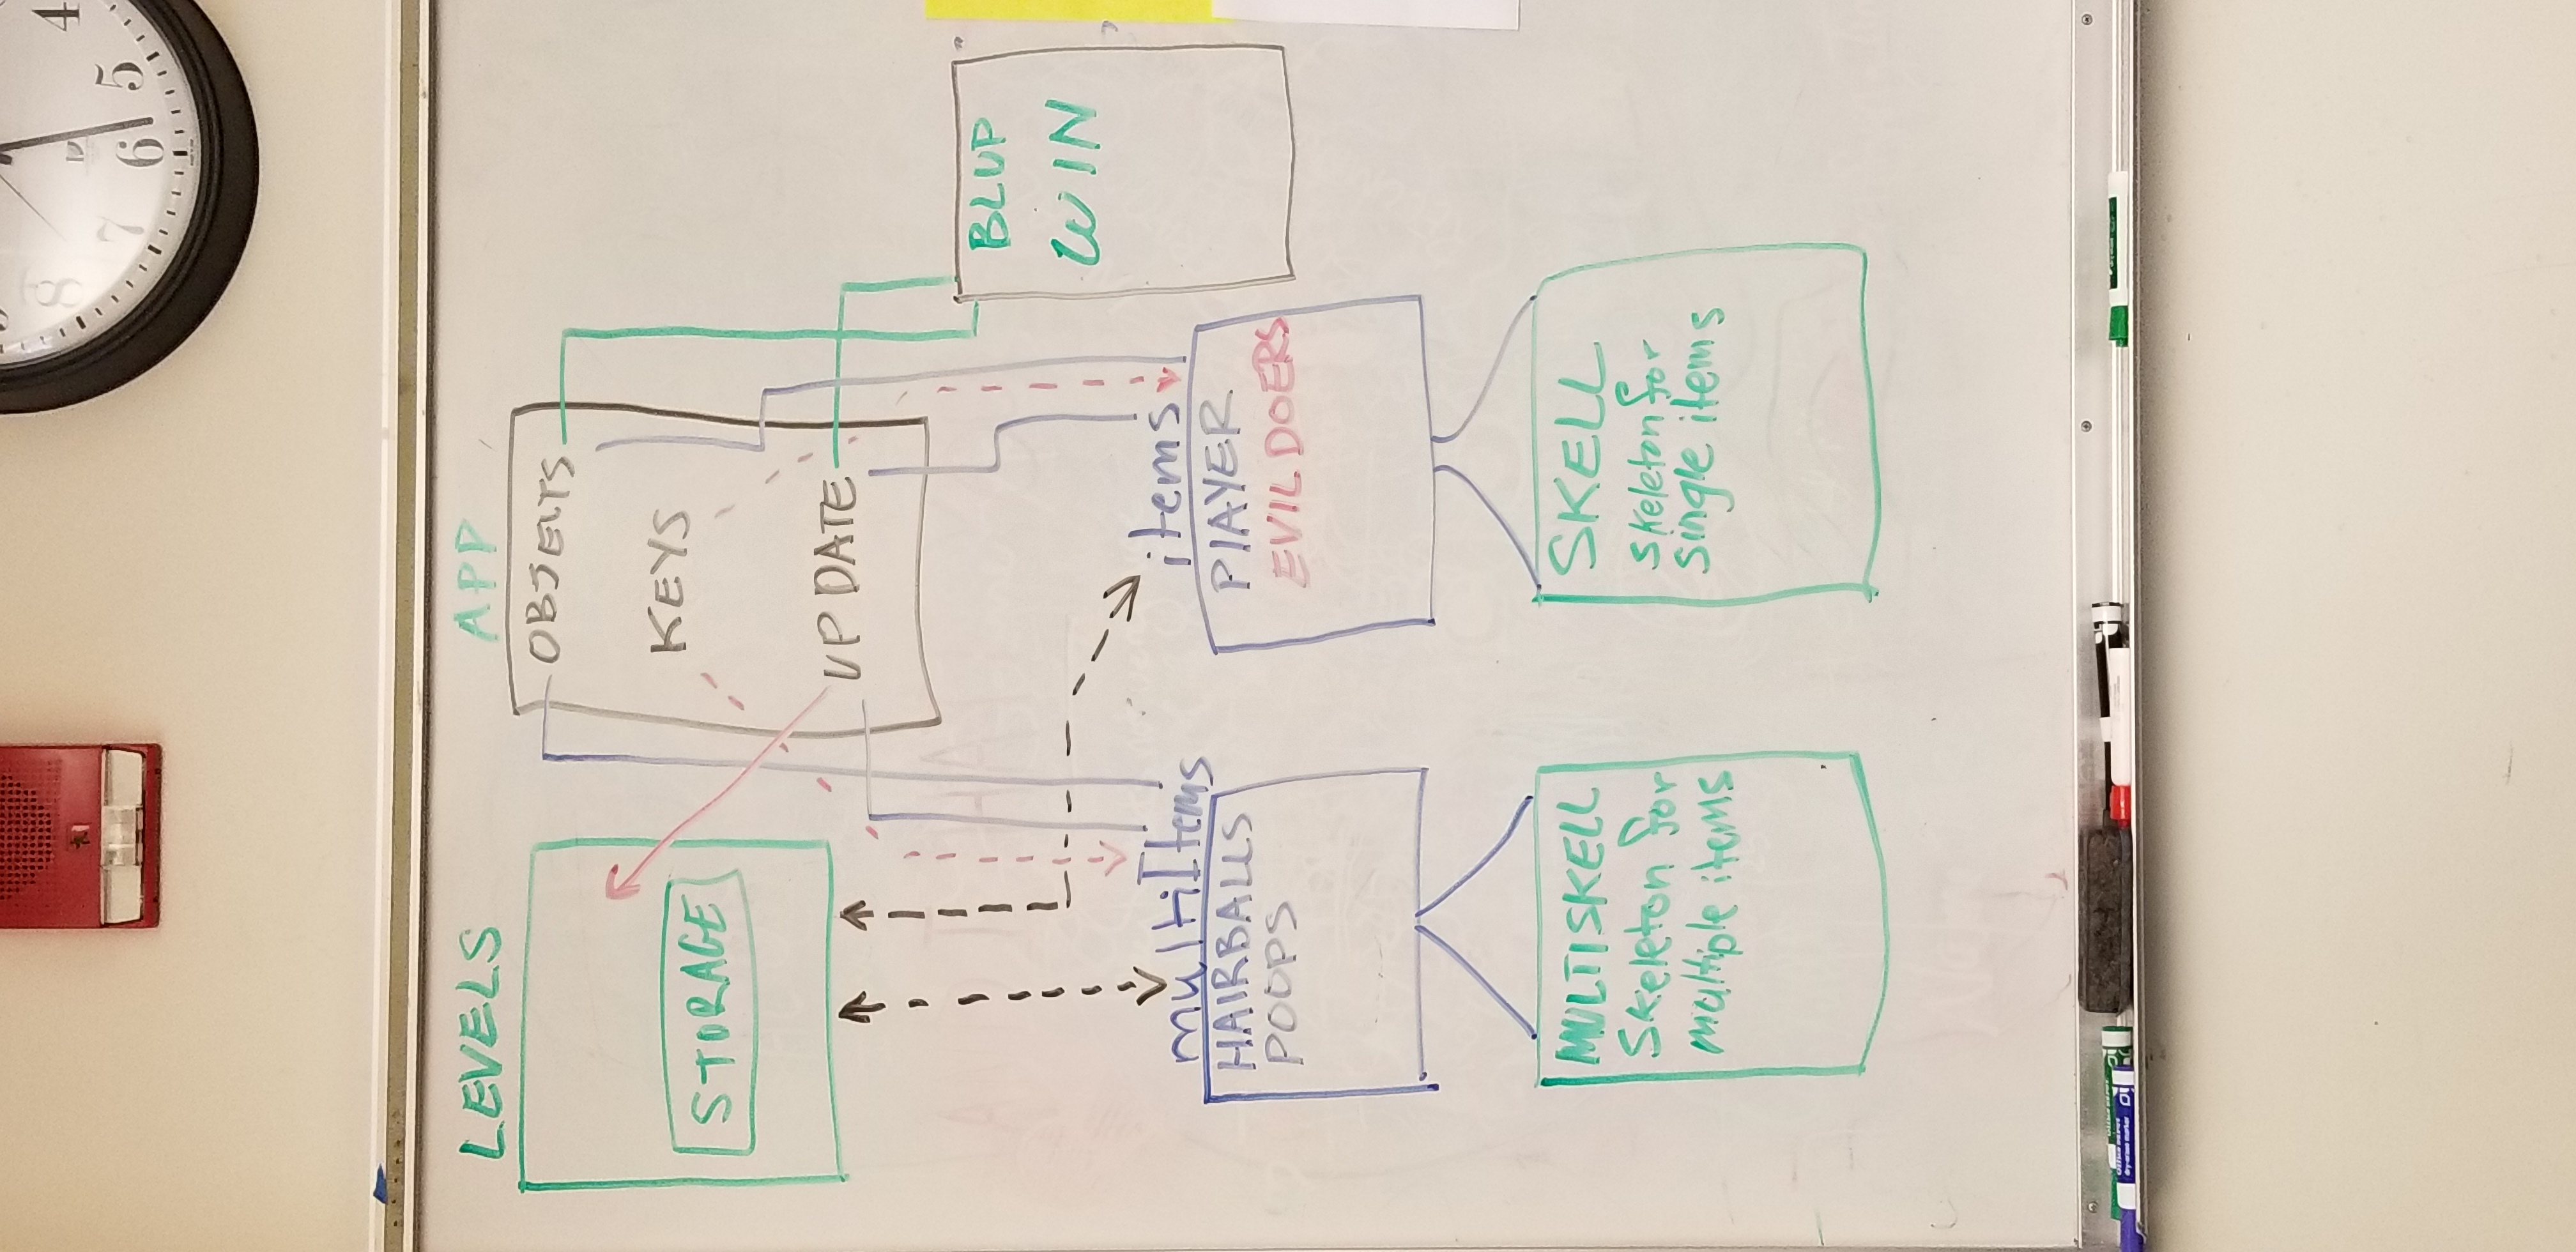 8
7
6
5
4
LEVELS
APP
OBJECTS
KEYS
STORAGE
UPDATE
BLUP
WIN
multiItems
items
HAIRBALLS
POOPS
PLAYER
EVIL DOERS
MULTISKELL
Skeleton for
multiple items
SKELL
Skeleton for
single items